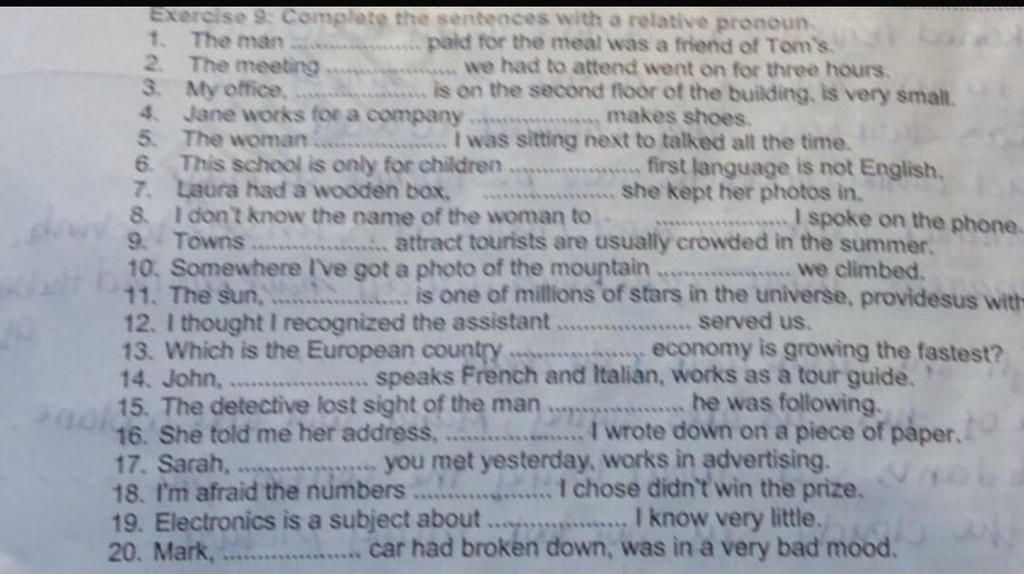 Exercise 9: Complete the sentences with a relative pronoun.
1. The man ..................... paid for the meal was a friend of Tom's.
2. The meeting ..................... we had to attend went on for three hours.
3. My office, ..................... is on the second floor of the building, is very small.
4. Jane works for a company ..................... makes shoes.
5. The woman ..................... I was sitting next to talked all the time.
6. This school is only for children ..................... first language is not English.
7. Laura had a wooden box, ..................... she kept her photos in.
8. I don't know the name of the woman to ..................... I spoke on the phone.
9. Towns ..................... attract tourists are usually crowded in the summer.
10. Somewhere I've got a photo of the mountain ..................... we climbed.
11. The sun, ..................... is one of millions of stars in the universe, providesus with
12. I thought I recognized the assistant ..................... served us.
13. Which is the European country ..................... economy is growing the fastest?
14. John, ..................... speaks French and Italian, works as a tour guide.
15. The detective lost sight of the man ..................... he was following.
16. She told me her address, ..................... I wrote down on a piece of paper.
17. Sarah, ..................... you met yesterday, works in advertising.
18. I'm afraid the numbers ..................... I chose didn't win the prize.
19. Electronics is a subject about ..................... I know very little.
20. Mark, ..................... car had broken down, was in a very bad mood.